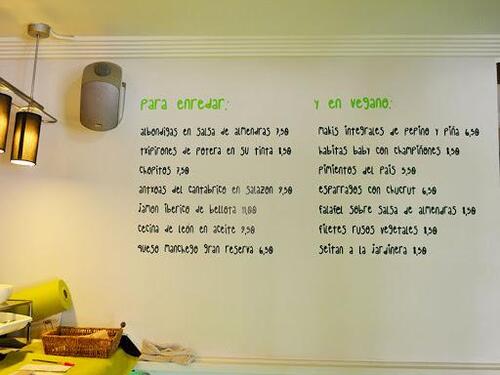 para enredar:
albondigas en salsa de almendras 7,50
txipirones de potera en su tinta 8,50
chopitos 7,50
antxoas del cantabrico en salazon 9,50
jamon iberico de bellota 11,00
cecina de león en aceite 9,50
queso manchego gran reserva 6,50
y en vegano:
makis integrales de pepino y piña 6,50
habitas baby con champiñones 8,50
pimientos del país 5,50
esparragos con chucrut 6,50
falafel sobre salsa de almendras 8,50
filetes rusos vegetales 8,50
seitan a la jardinera 8,50